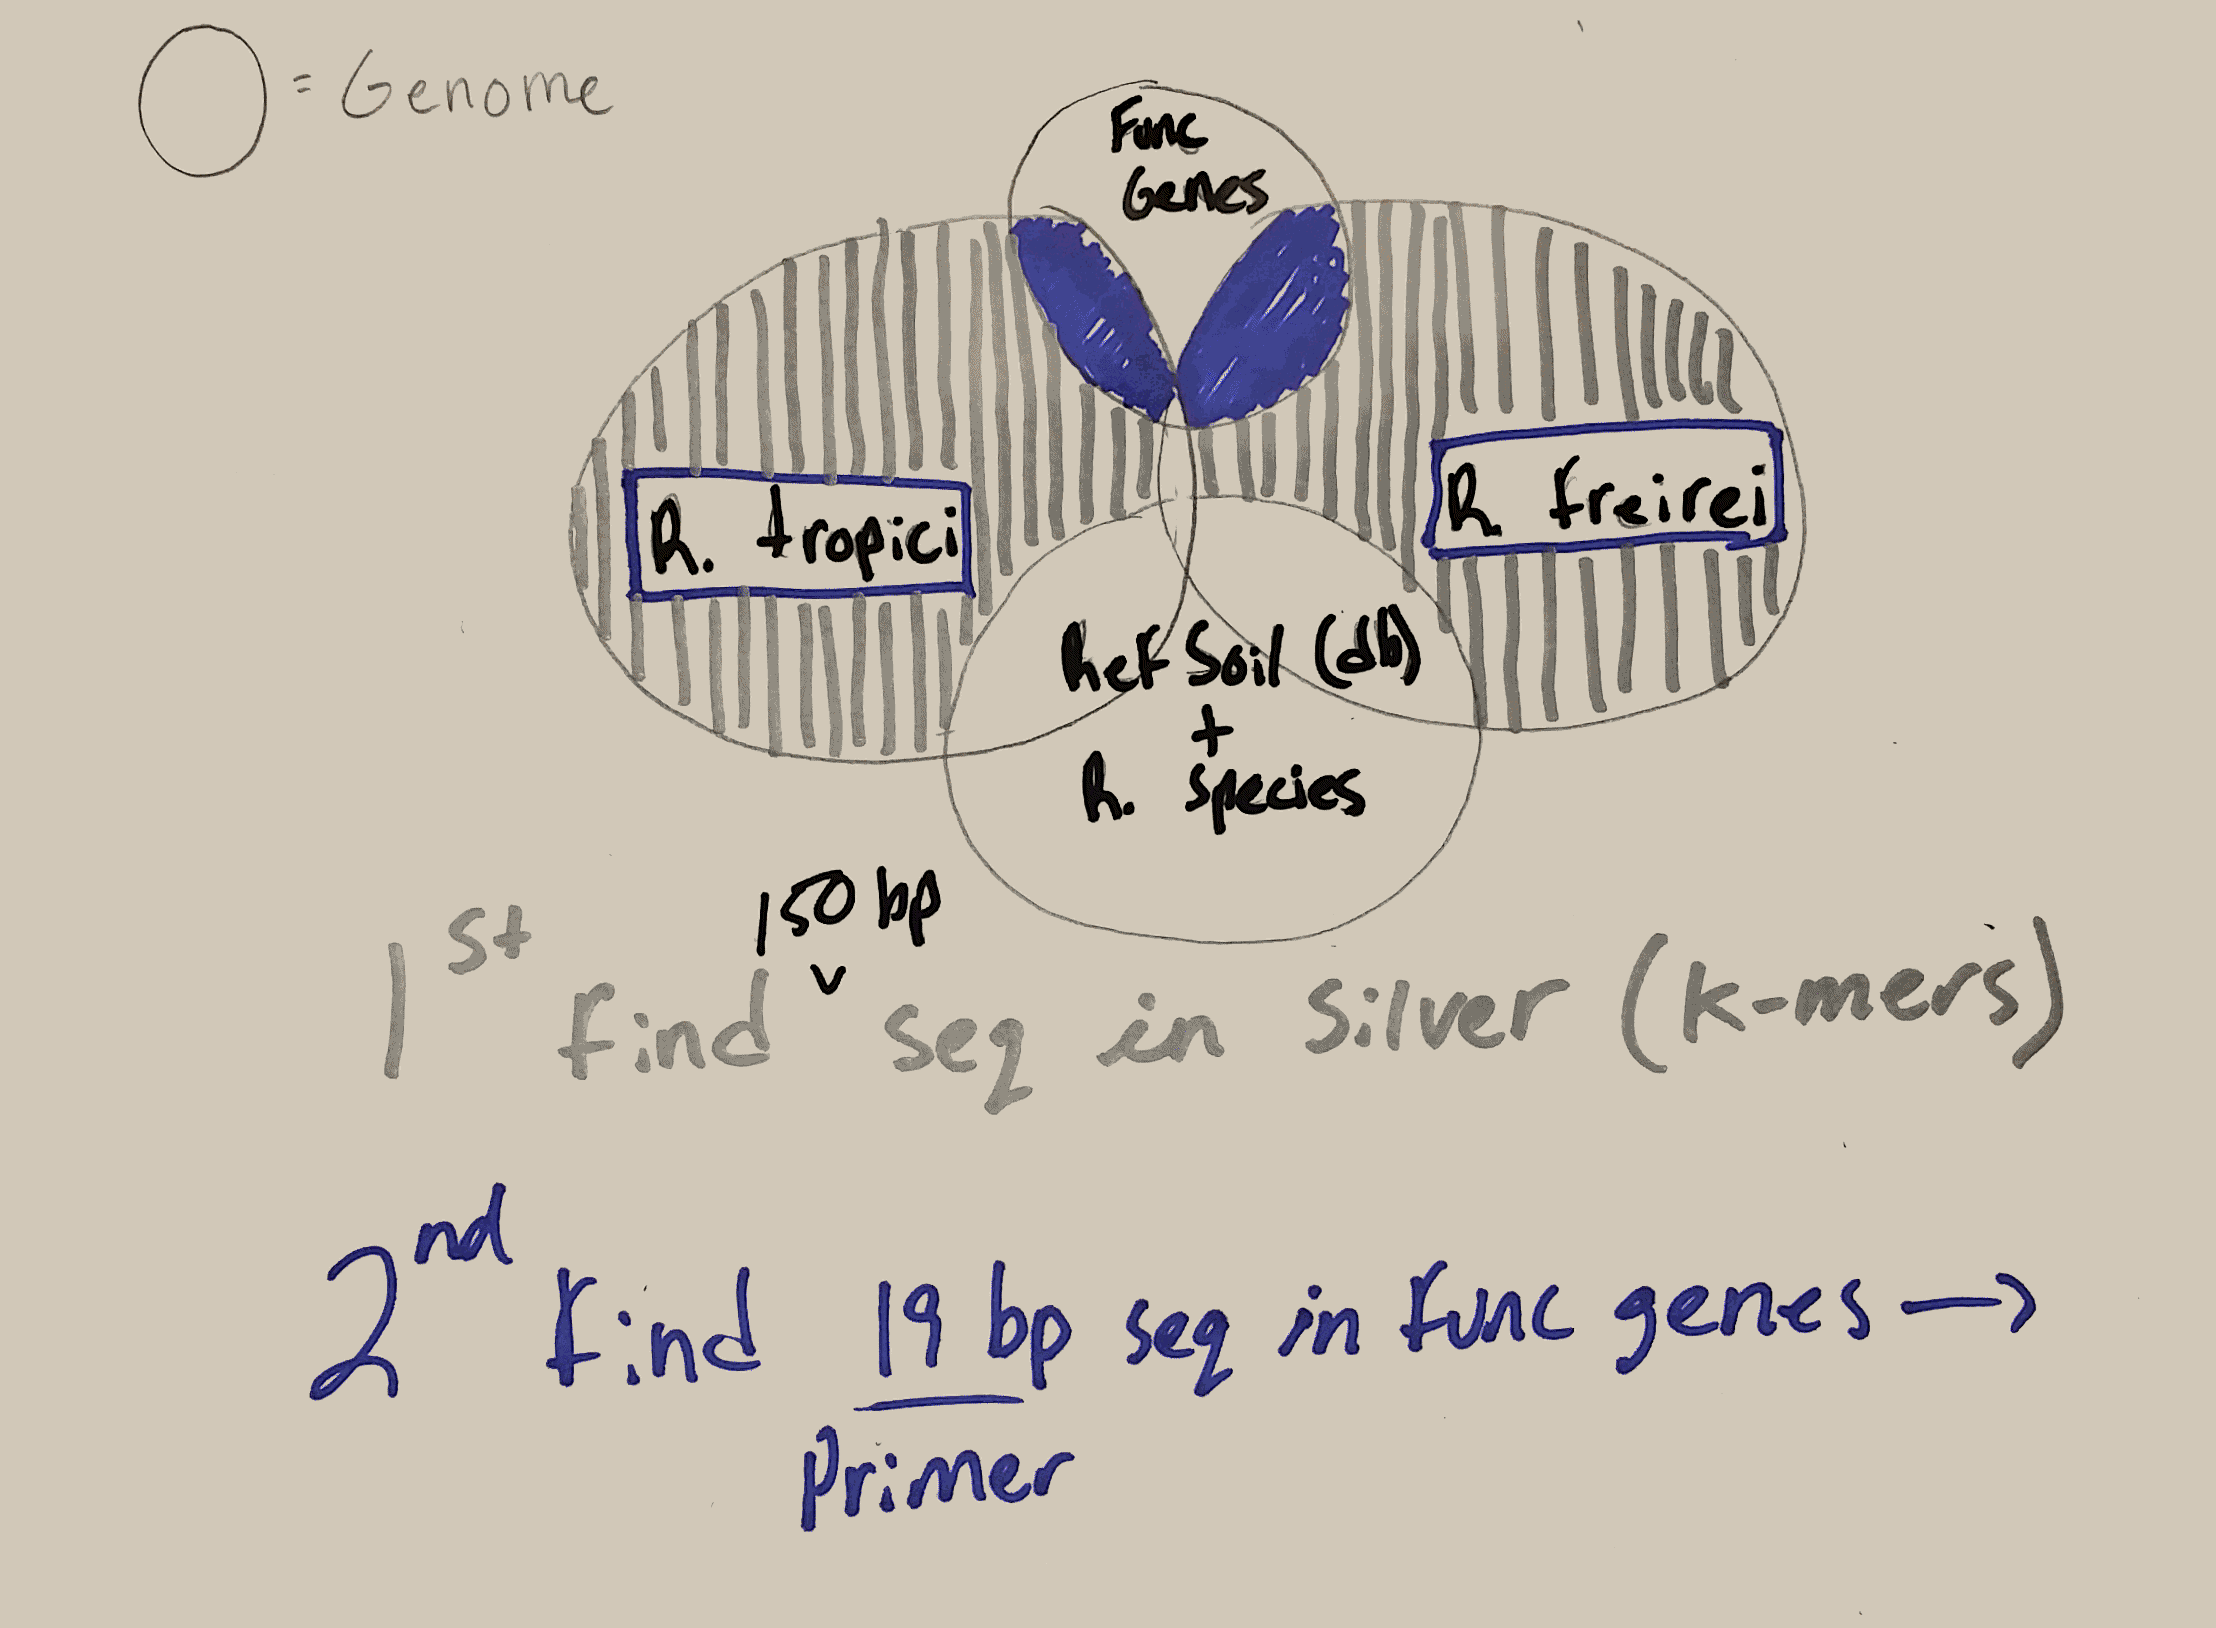 = Genome
Func
Genes
R. tropici
R. freirei
Ref Soil (db)
+
R. species
150 bp
v
1st find seq in Silver (k-mers)
2nd find 19 bp seq in func genes →
Primer